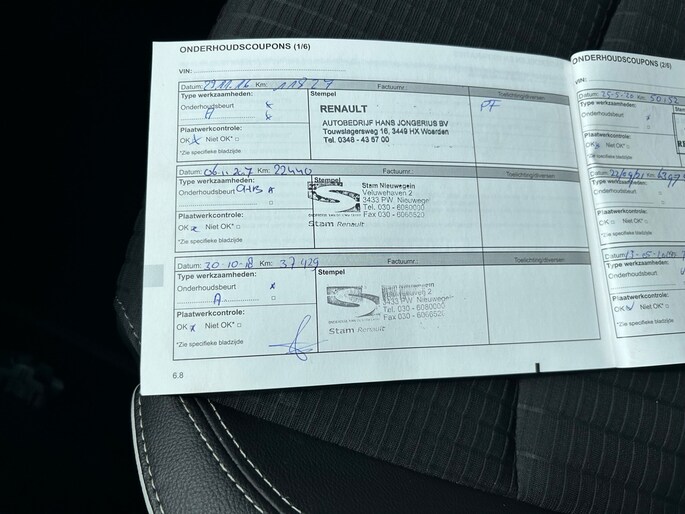 ONDERHOUDSCOUPONS (1/6)
VIN:
Datum: 29.11.16 Km: Factuurnr.: Toelichting/diversen:
Type werkzaamheden: Stempel
Onderhoudsbeurt x PF
A x
RENAULT
AUTOBEDRIJF HANS JONGERIUS BV
Touwslagersweg 16, 3449 HX Woerden
Tel. 0348 - 43 67 00
Plaatwerkcontrole:
OK x Niet OK*
*Zie specifieke bladzijde
Datum: Km: 22440 Factuurnr.: Toelichting/diversen:
Type werkzaamheden: Stempel
Onderhoudsbeurt A
Stam Nieuwegein
Veluwehaven 2
3433 PW Nieuwege
Tel. 030 - 6080000
Fax 030 - 6066520
Stam Renault
Plaatwerkcontrole:
OK x Niet OK*
*Zie specifieke bladzijde
Datum: 30-10-18 Km: 37429 Factuurnr.: Toelichting/diversen:
Type werkzaamheden: Stempel
Onderhoudsbeurt x
A
3433 PW Nieuwege
Tel. 030 - 6080000
Fax 030 - 6066520
Stam Renault
Plaatwerkcontrole:
OK x Niet OK*
*Zie specifieke bladzijde
6.8
ONDERHOUDSCOUPONS (2/6)
VIN:
Datum: 25-5-20 Km:
Type werkzaamheden:
Onderhoudsbeurt x
Plaatwerkcontrole:
OK x Niet OK*
*Zie specifieke bladzijde
Datum: Km:
Type werkzaamheden:
Onderhoudsbeurt
Plaatwerkcontrole:
OK Niet OK*
*Zie specifieke bladzijde
Datum:
Type werkzaamheden:
Onderhoudsbeurt
Plaatwerkcontrole:
OK Niet OK*
*Zie specifieke bladzijde